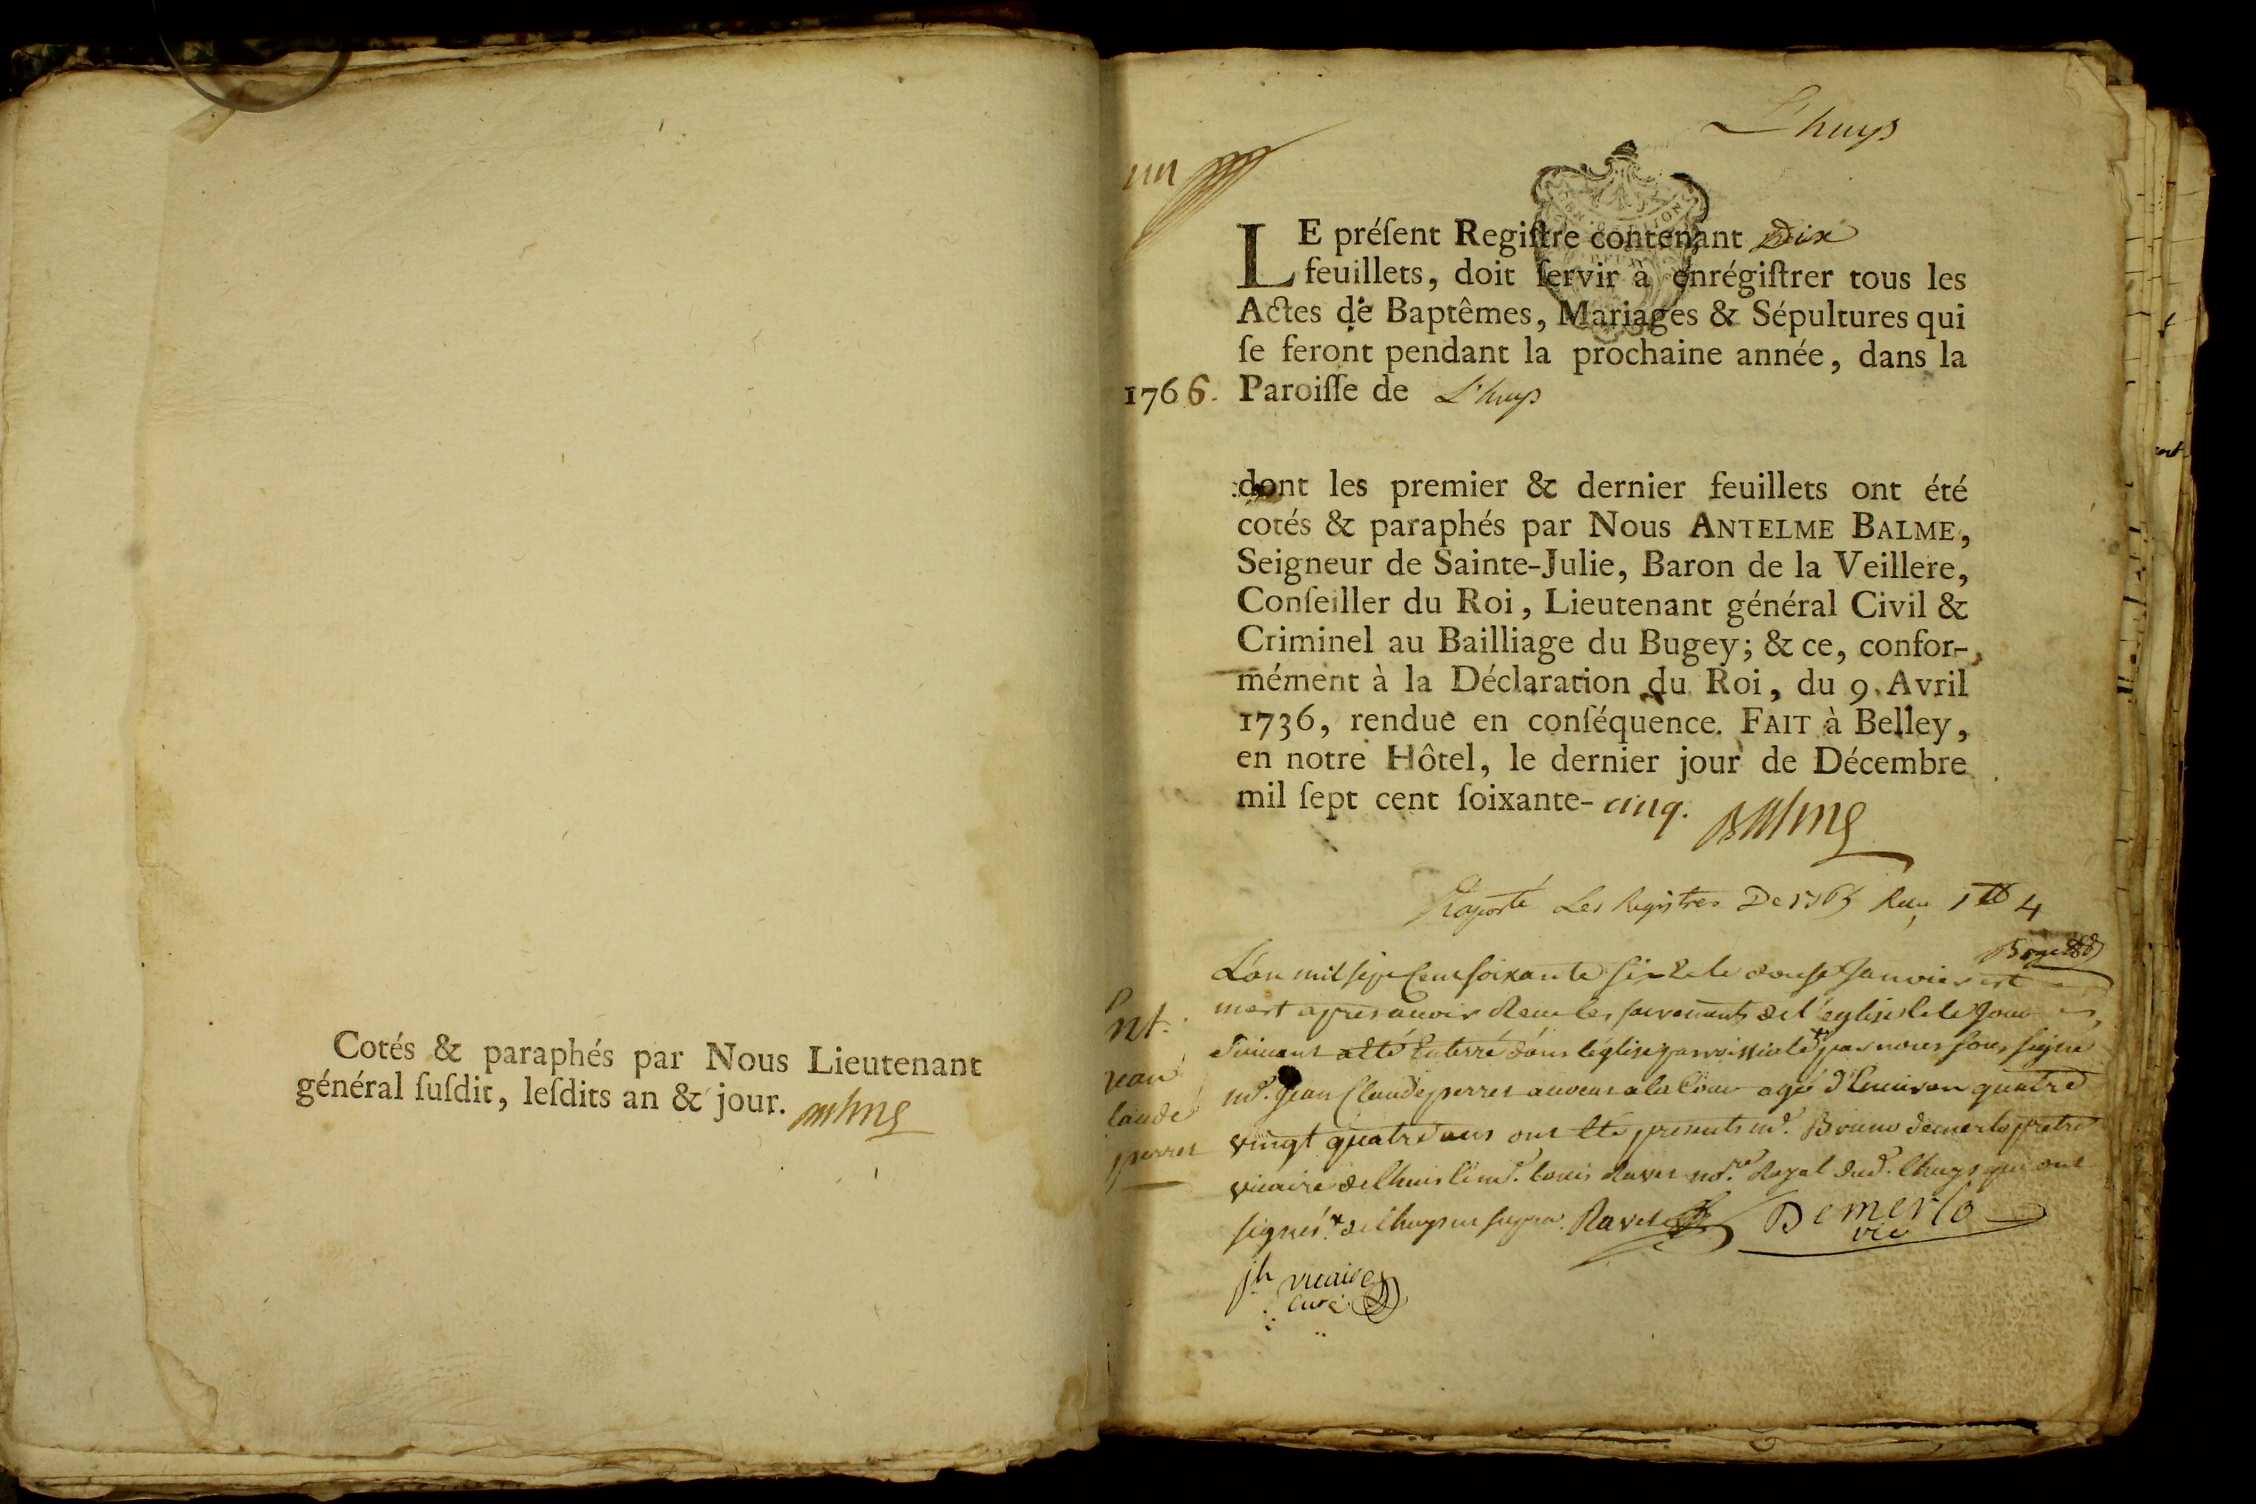 Cotés & paraphés par Nous Lieutenant
général ſuſdit, leſdits an & jour. Balme
L'huys
un
LE préſent Regiſtre contenant Dix
feuillets, doit ſervir à enrégiſtrer tous les
Actes de Baptêmes, Mariages & Sépultures qui
ſe feront pendant la prochaine année, dans la
1766. Paroiſſe de L'huys
dont les premier & dernier feuillets ont été
cotés & paraphés par Nous ANTELME BALME,
Seigneur de Sainte-Julie, Baron de la Veillere,
Conſeiller du Roi, Lieutenant général Civil &
Criminel au Bailliage du Bugey; & ce, confor-
mément à la Déclaration du Roi, du 9. Avril
1736, rendue en conſéquence. FAIT à Belley,
en notre Hôtel, le dernier jour de Décembre
mil ſept cent ſoixante-cinq. Balme
Raporté Les Registres De 1765
L'an mil sept cent soixante six & le douse janvier est
mort apres avoir receu les sacrements de l'eglise & le jour
suivant a été enterré dans l'église parroissiale par nous sous signé
mr. jean Claude perret avocat a la Cour agé d'environ quatre
vingt quatre ans ont été presents mr. Bruno demerlo pretre
vicaire de lhuis & mr. louis Ravet Royal dud. lhuys qui ont
signés. de lhuys Ravet Demerlo
vic
jh
curé
nt.
jean
laude
perret